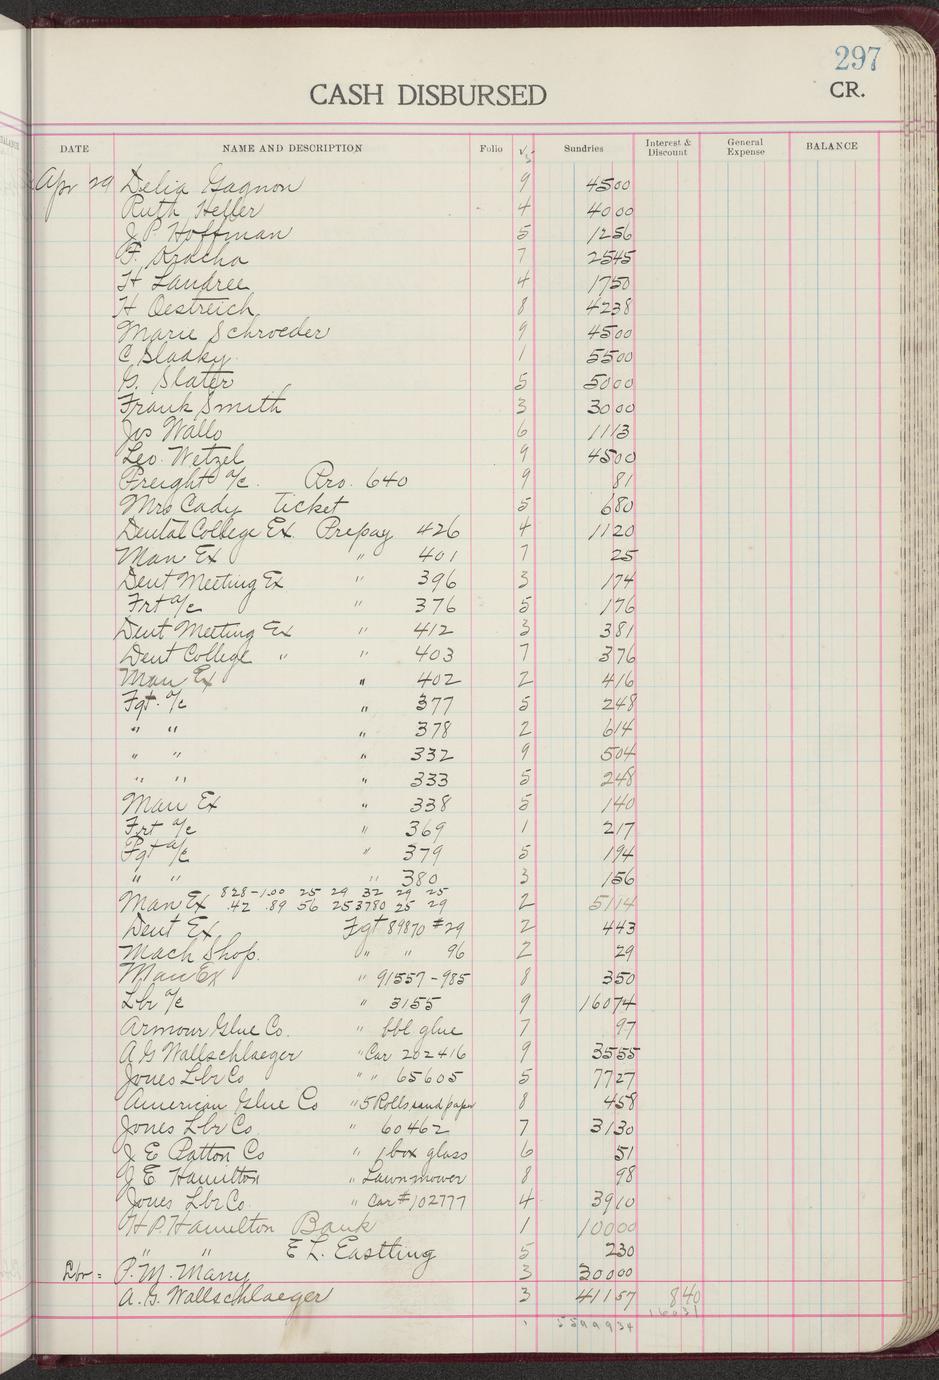 297
CASH DISBURSED CR.
DATE NAME AND DESCRIPTION Folio √s Sundries Interest & Discount General Expense BALANCE
Apr 29 Delia Gagnon 9 45 00
Ruth Heller 4 40 00
J. P. Hoffman 5 12 56
F. Kracha 7 25 45
H Landree 4 17 50
H Oestreich 8 42 38
Marie Schroeder 9 45 00
C Sladky 1 55 00
G. Slater 5 50 00
Frank Smith 3 30 00
Jos Wallo 6 11 13
Leo. Wetzel 9 45 00
Freight a/c. Pro. 640 9 81
Mrs Cady Ticket 5 6 80
Dental College Ex. Prepay 426 4 11 20
Man Ex " 401 7 25
Dent Meeting Ex " 396 3 1 74
Frt a/c " 376 5 1 76
Dent Meeting Ex " 412 3 3 81
Dent College " " 403 7 3 76
Man Ex " 402 2 4 16
Fgt. a/c " 377 5 2 48
" " " 378 2 6 14
" " " 332 9 5 04
" " " 333 5 2 48
Man Ex " 338 5 1 40
Frt a/c " 369 1 2 17
Fgt a/c " 379 5 1 94
" " " 380 3 1 56
828-1.00 25 29 32 29 25
Man Ex .42 .89 56 25 3780 25 29 2 51 14
Dent Ex Fgt 89870 #29 2 4 43
Mach Shop. " " 96 2 29
Man Ex " 91557-985 8 3 50
Lbr a/c " 3155 9 160 74
Armour Glue Co. " bbl glue 7 97
A G Wallschlaeger " Car 202416 9 35 55
Jones Lbr Co " " 65605 5 77 27
American Glue Co " 5 Rolls sand paper 8 4 58
Jones Lbr Co " 60462 7 31 30
J E Patton Co " 1 box glass 6 51
J E Hamilton " Lawnmower 8 98
Jones Lbr Co " Car #102777 4 39 10
H P. Hamilton Bank 1 100 00
" " E L. Eastling 5 2 30
Lbr = P. M. Many 3 300 00
A. G. Wallschlaeger 3 411 57 8 40
55999 34 160 31